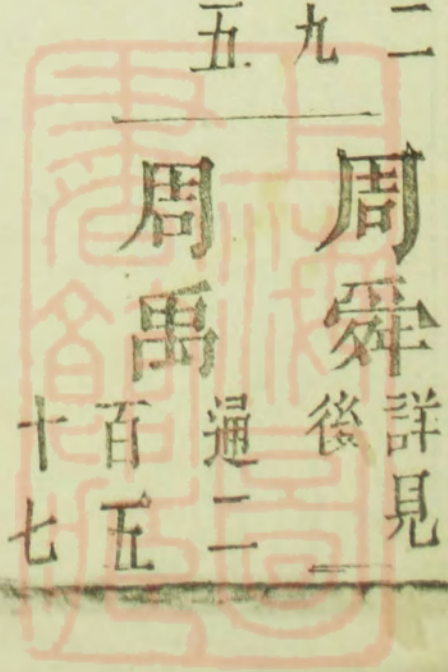 二
九
五
周舜
詳見
後
周禹
通二
百五
十七